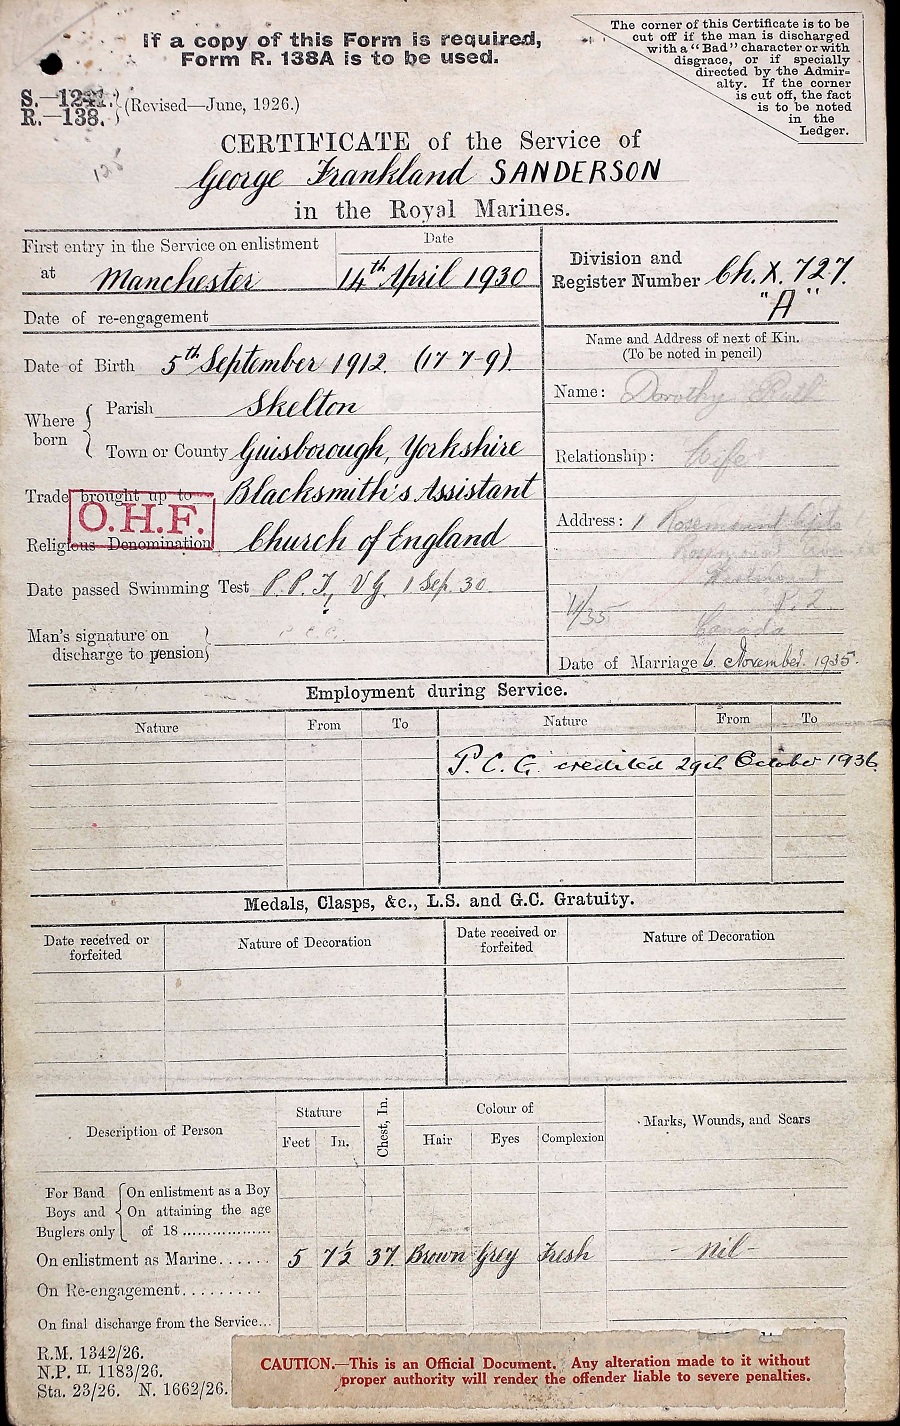 If a copy of this Form is required,
Form R. 138A is to be used.
The corner of this Certificate is to be
cut off if the man is discharged
with a "Bad" character or with
disgrace, or if specially
directed by the Admir-
alty. If the corner
is cut off, the fact
is to be noted
in the
Ledger.
S.—1241.
R.—138. (Revised—June, 1926.)
125
CERTIFICATE of the Service of
George Frankland SANDERSON
in the Royal Marines.
First entry in the Service on enlistment
at Manchester
Date
14th April 1930
Division and
Register Number Ch. X. 727.
"A"
Date of re-engagement
Date of Birth 5th September 1912 (17-7-9)
Where born
Parish Skelton
Town or County Guisborough, Yorkshire
Trade brought up to Blacksmith's Assistant
O.H.F.
Religious Denomination Church of England
Date passed Swimming Test P.P.T, VG. 1 Sep. 30
Man's signature on
discharge to pension
Name and Address of next of Kin.
(To be noted in pencil)
Name: Dorothy Ruth
Relationship: Wife
Address: 1 Rosemount Apts
Rosemount
Westmount
P.2.
11/35
Canada
Date of Marriage 6. November. 1935.
Employment during Service.
Nature From To Nature From To
P.C.G. credited 29th October 1936.
Medals, Clasps, &c., L.S. and G.C. Gratuity.
Date received or
forfeited
Nature of Decoration
Date received or
forfeited
Nature of Decoration
Description of Person
Stature
Feet In.
Chest, In.
Colour of
Hair Eyes Complexion
Marks, Wounds, and Scars
For Band
Boys and
Buglers only
On enlistment as a Boy
On attaining the age
of 18 ..................
On enlistment as Marine...... 5 7½ 37 Brown Grey Fresh - nil -
On Re-engagement.........
On final discharge from the Service...
R.M. 1342/26.
N.P. II. 1183/26.
Sta. 23/26. N. 1662/26.
CAUTION.—This is an Official Document. Any alteration made to it without
proper authority will render the offender liable to severe penalties.